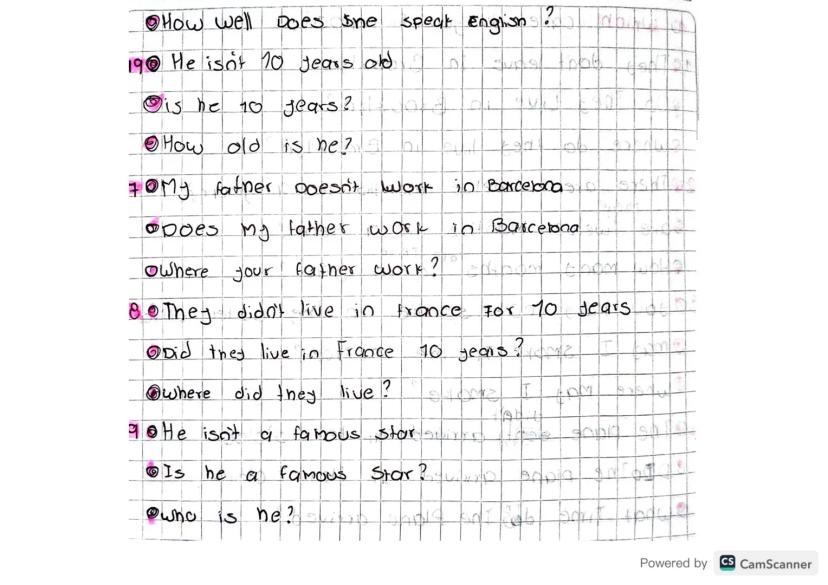 How well Does she speak English?
19 He isn't 10 years old
is he 10 years?
How old is he?
7 My father Doesn't work in Barcelona
Does my father work in Barcelona
Where your father work?
8 They didn't live in france For 10 years
Did they live in France 10 years?
where did they live?
9 He isn't a famous star
Is he a famous star?
who is he?
Powered by CS CamScanner